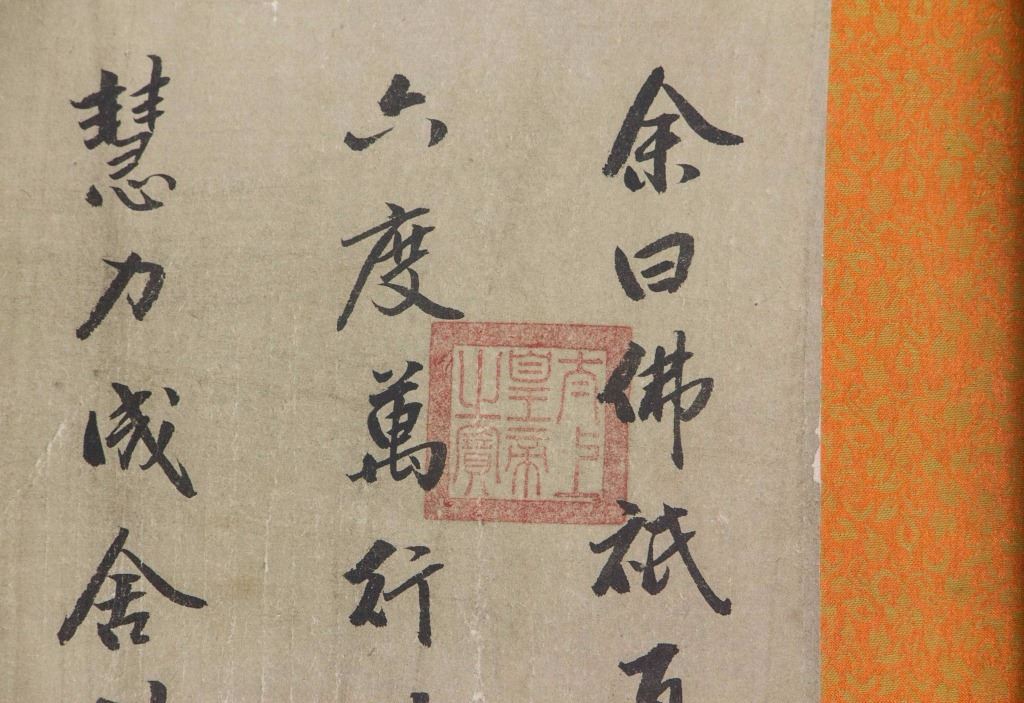 余曰佛祇
六度萬行
慧力成舍
太上
皇帝
之寶